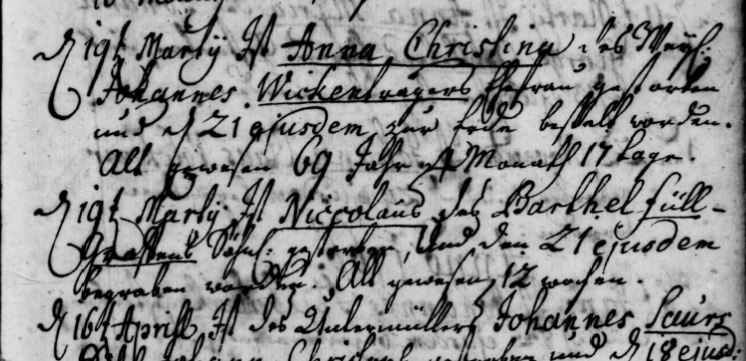 d 19t Martÿ Ist Anna Christina des Weyl:
Johannes Wickentragers Ehefrau gestorben
und d 21 ejusdem zur Erde bestelt worden.
Alt gewesen 69 Jahr 4 Monath 17 tage.
d 19t Martÿ Ist Niccolaus des Barthel Füll-
Söhnl: gestorben, Und den 21 ejusdem
begraben worden. Alt gewesen 12 wochen.
d 16t Aprill Ist des Untermüllers Johannes Laurs
Johann Christoph und d 18 ejusd: